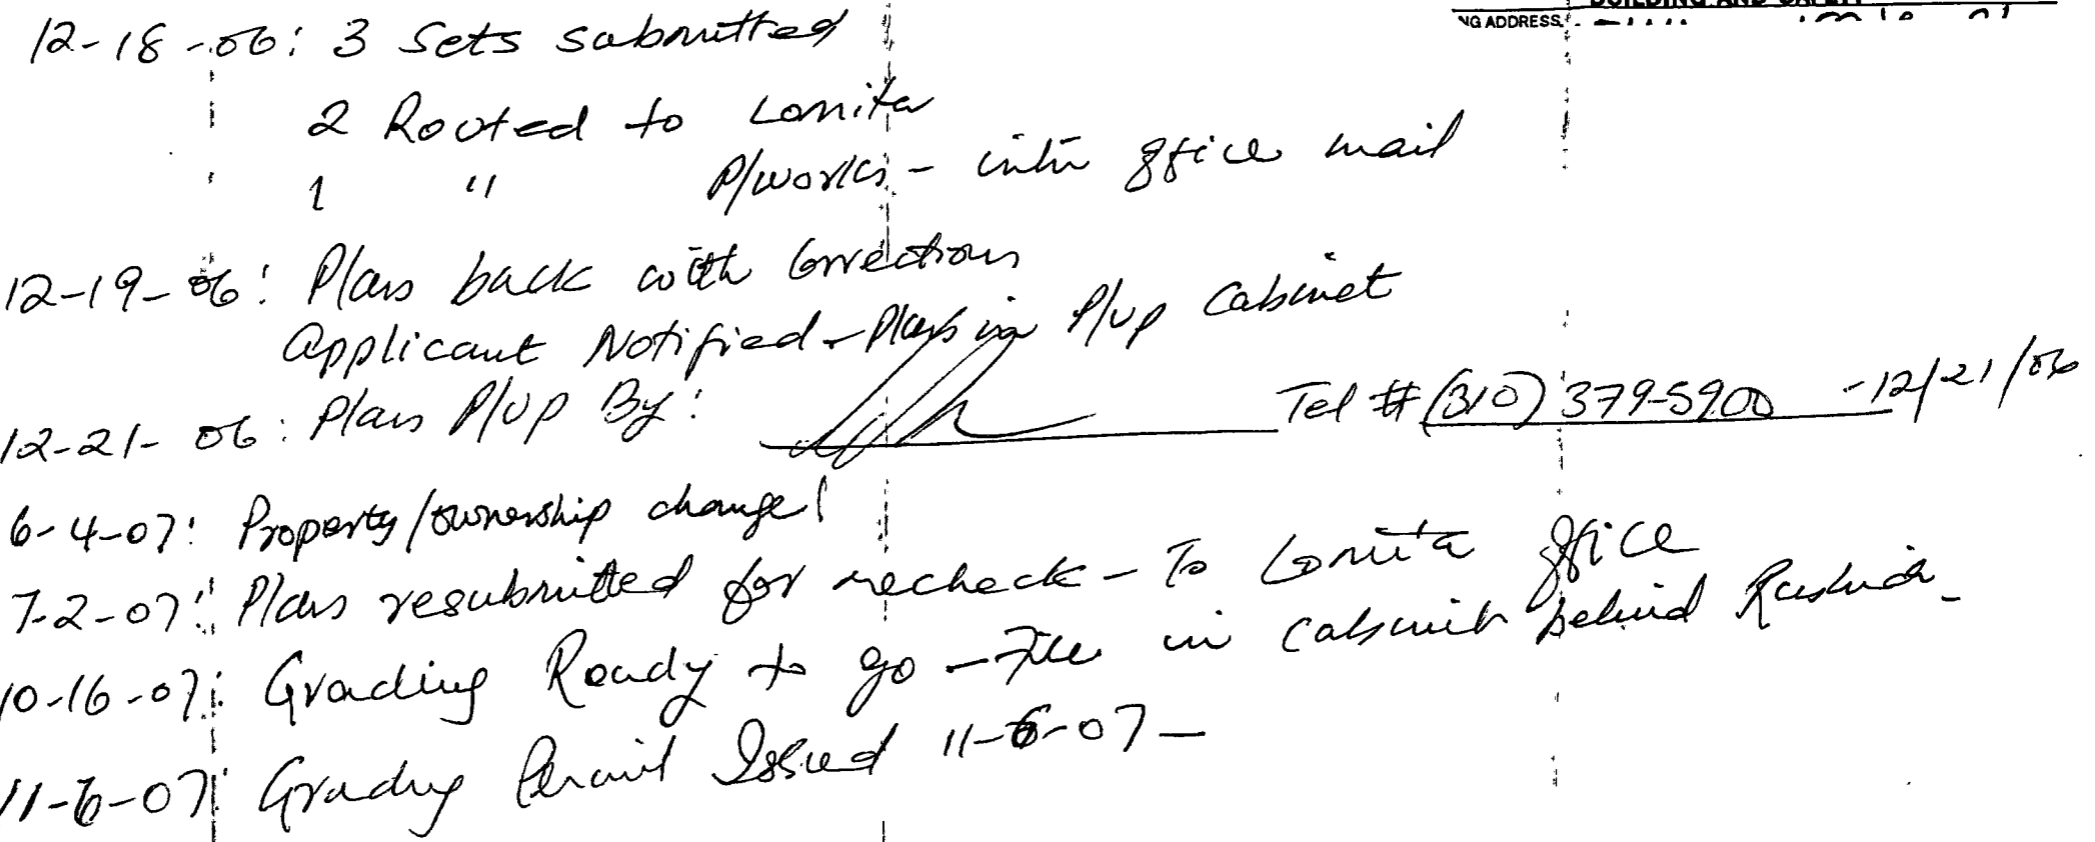 BUILDING AND SAFETY
NG ADDRESS
12-18-06: 3 Sets submitted
2 Routed to Lomita
1 " P/works - inter office mail
12-19-06: Plans back with Corrections
Applicant Notified - Plans in P/up Cabinet
12-21-06: Plans P/up By: Tel # (310) 379-5900 - 12/21/06
6-4-07: Property/ownership change!
7-2-07: Plans resubmitted for recheck - To Lomita Office
10-16-07: Grading Ready to go - File in cabinet behind
11-6-07: Grading Permit Issued 11-6-07 -